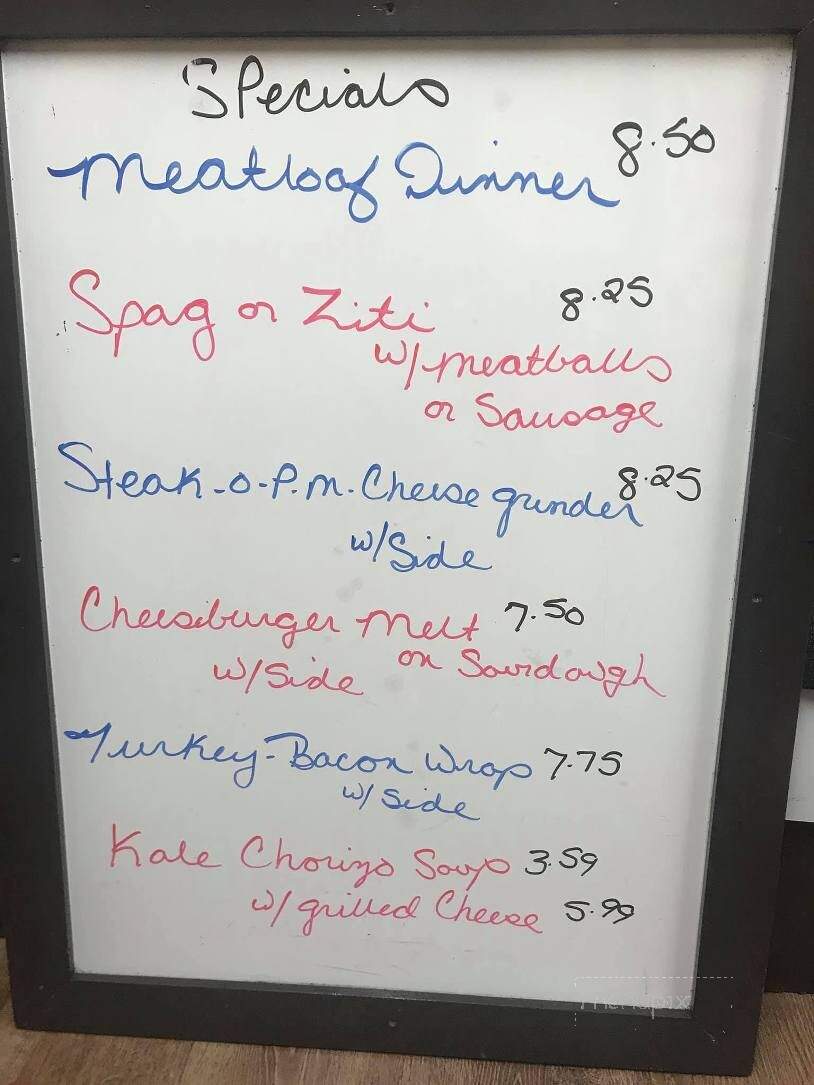 Specials
Meatloaf Dinner 8.50
Spag or Ziti 8.25
w/meatballs
or Sausage
Steak-o-P.M. Cheese grinder 8.25
w/Side
Cheeseburger Melt 7.50
w/Side on Sourdough
Turkey-Bacon Wrap 7.75
w/Side
Kale Chorizo Soup 3.59
w/grilled Cheese 5.99
menupix